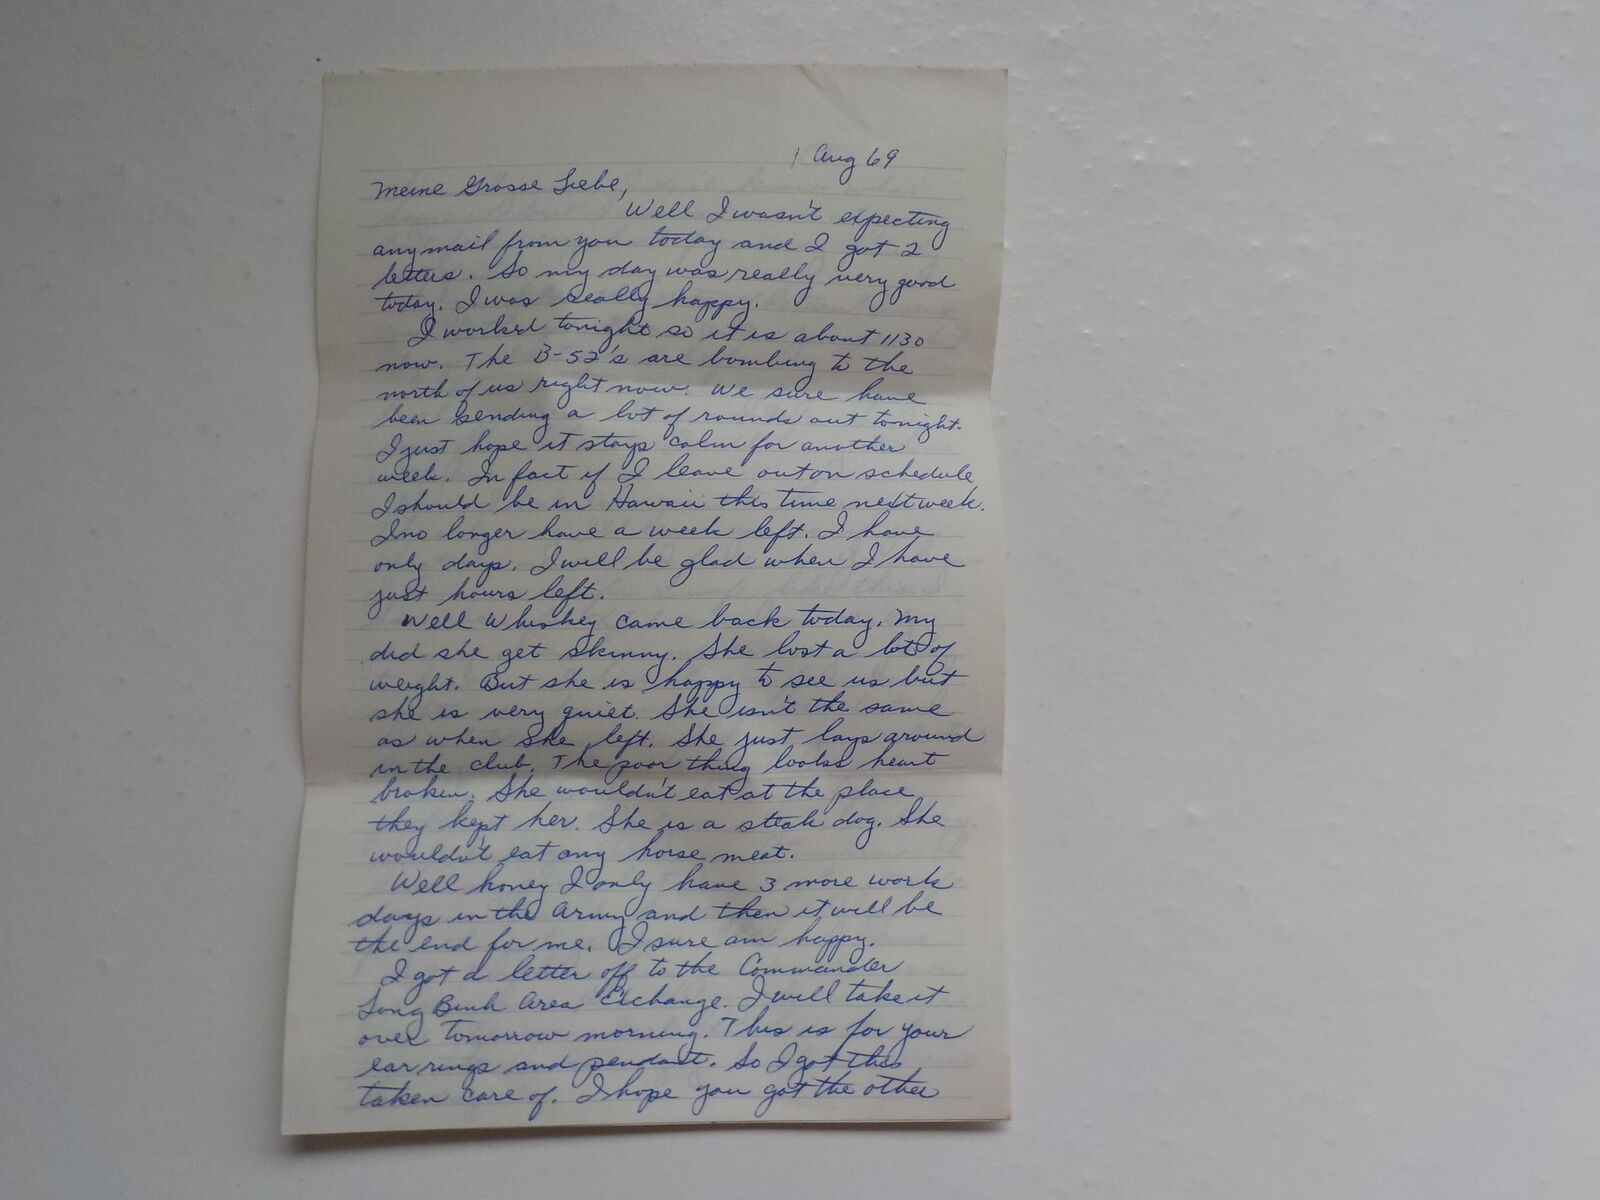 1 Aug 69
Meine Grosse Liebe,
Well I wasn't expecting
any mail from you today and I got 2
letters. So my day was really very good
today. I was really happy.
I worked tonight so it is about 1130
now. The B-52's are bombing to the
north of us right now. We sure have
been sending a lot of rounds out tonight.
I just hope it stays calm for another
week. In fact if I leave out on schedule
I should be in Hawaii this time next week.
I no longer have a week left. I have
only days. I will be glad when I have
just hours left.
Well Whiskey came back today. My
did she get skinny. She lost a lot of
weight. But she is happy to see us but
she is very quiet. She isn't the same
as when she left. She just lays around
in the club. The poor thing looks heart
broken. She wouldn't eat at the place
they kept her. She is a steak dog. She
wouldn't eat any horse meat.
Well honey I only have 3 more work
days in the Army and then it will be
the end for me. I sure am happy.
I got a letter off to the Commander
Long Binh Area Exchange. I will take it
over tomorrow morning. This is for your
ear rings and pendant. So I got this
taken care of. I hope you got the other